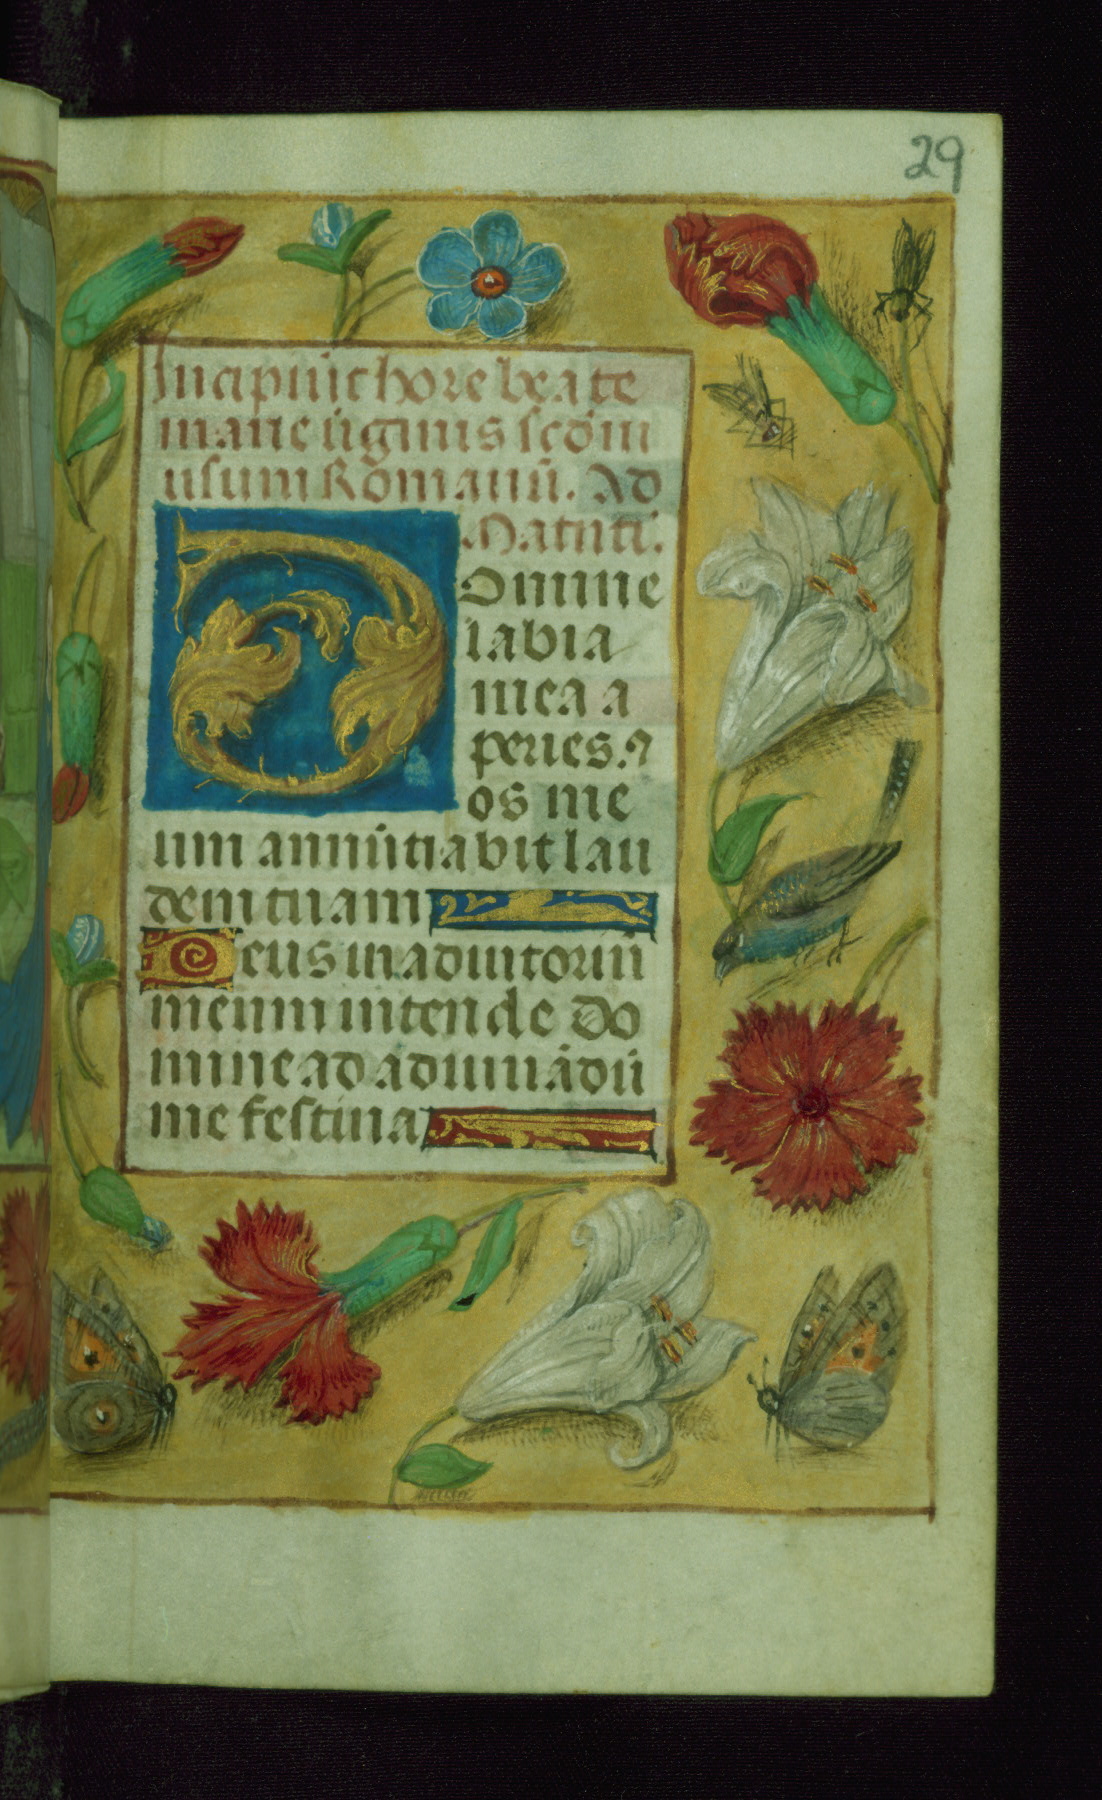 29
Incipiūt hore beate
marie ũginis scdm̄
usum Romanū. Ad
Matuti.
Domine
labia
mea a
peries. ⁊
os me
um annūtiabit lau
dem tuam
Deus in adiutoriū
meum intende Do
mine ad adiuuādū
me festina